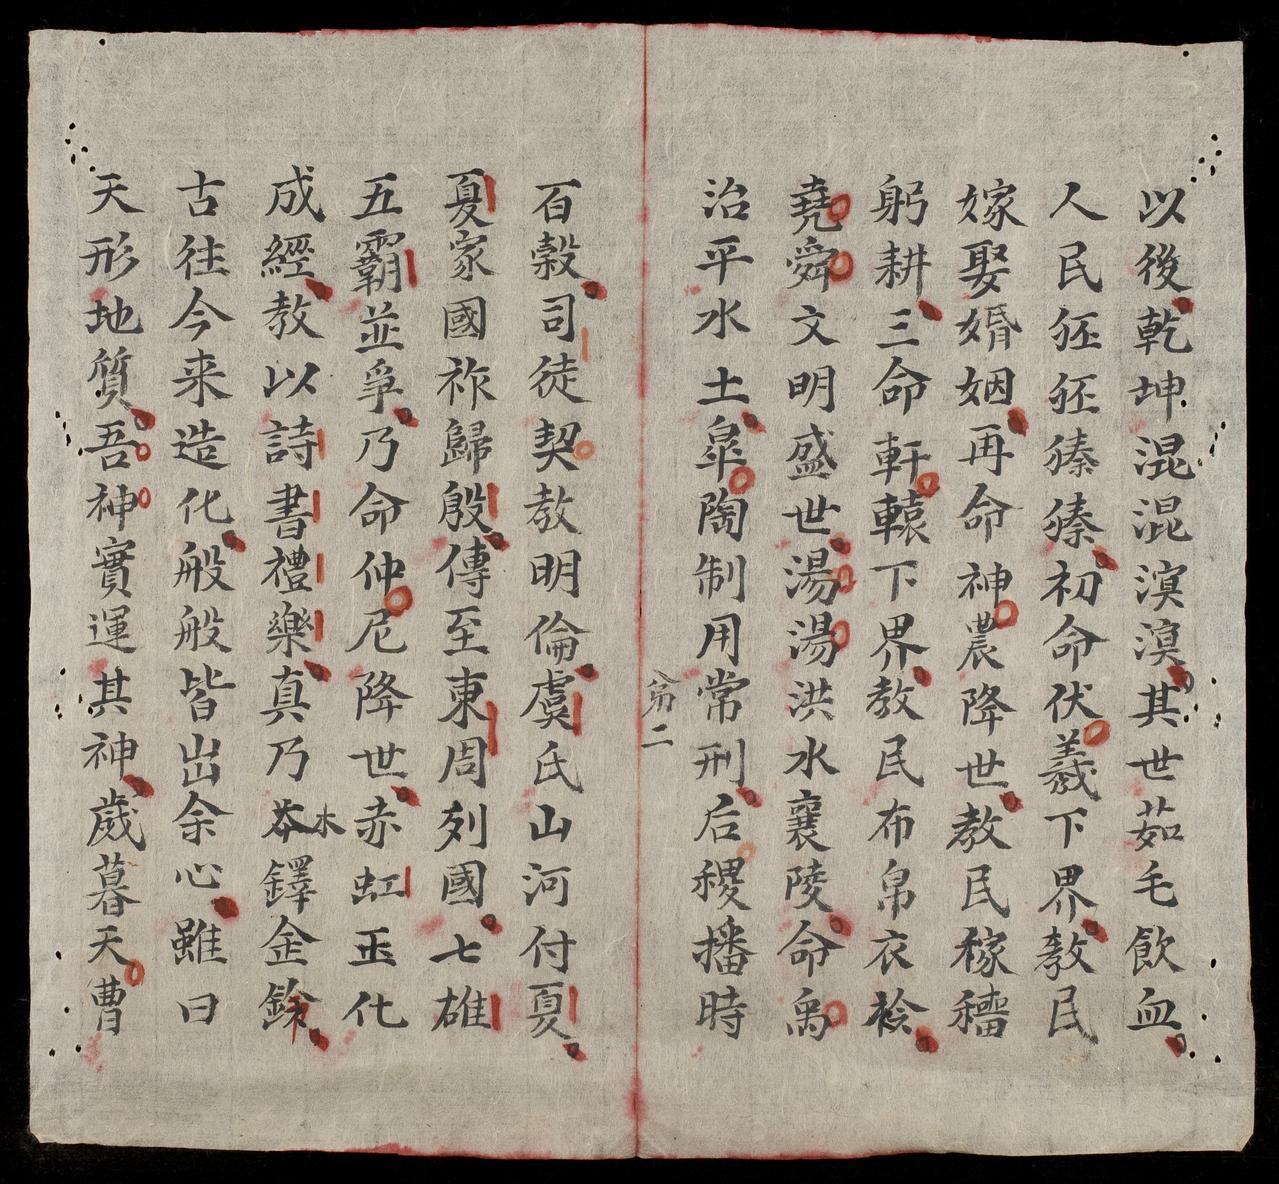 以後乾坤混混溟溟其世茹毛飲血
人民狉狉獉獉初命伏羲下界教民
嫁娶婚姻再命神農降世教民稼穡
躬耕三命軒轅下界教民布帛衣衿
堯舜文明盛世湯湯洪水襄陵命禹
治平水土皐陶制用常刑后稷播時
𥫗二
百穀司徒契教明倫虞氏山河付夏
夏家國祚歸殷傳至東周列國七雄
五霸並爭乃命仲尼降世赤虹玉化
成經教以詩書禮樂真乃夲木鐸金鈴
古往今来造化般般皆出余心雖曰
天形地質吾神實運其神歲暮天曹